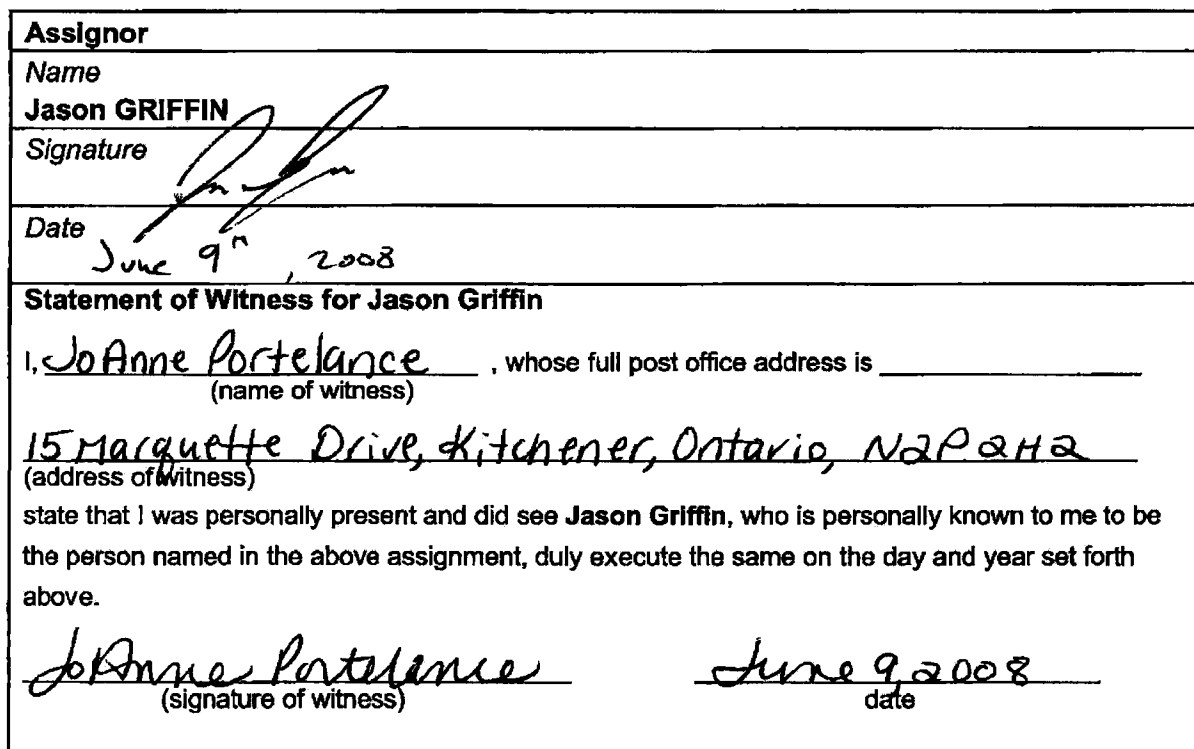 Assignor
Name
Jason GRIFFIN
Signature
Date
June 9th, 2008
Statement of Witness for Jason Griffin
I, JoAnne Portelance , whose full post office address is
(name of witness)
15 Marquette Drive, Kitchener, Ontario, N2P 2H2
(address of witness)
state that I was personally present and did see Jason Griffin, who is personally known to me to be
the person named in the above assignment, duly execute the same on the day and year set forth
above.
JoAnne Portelance June 9, 2008
(signature of witness) date